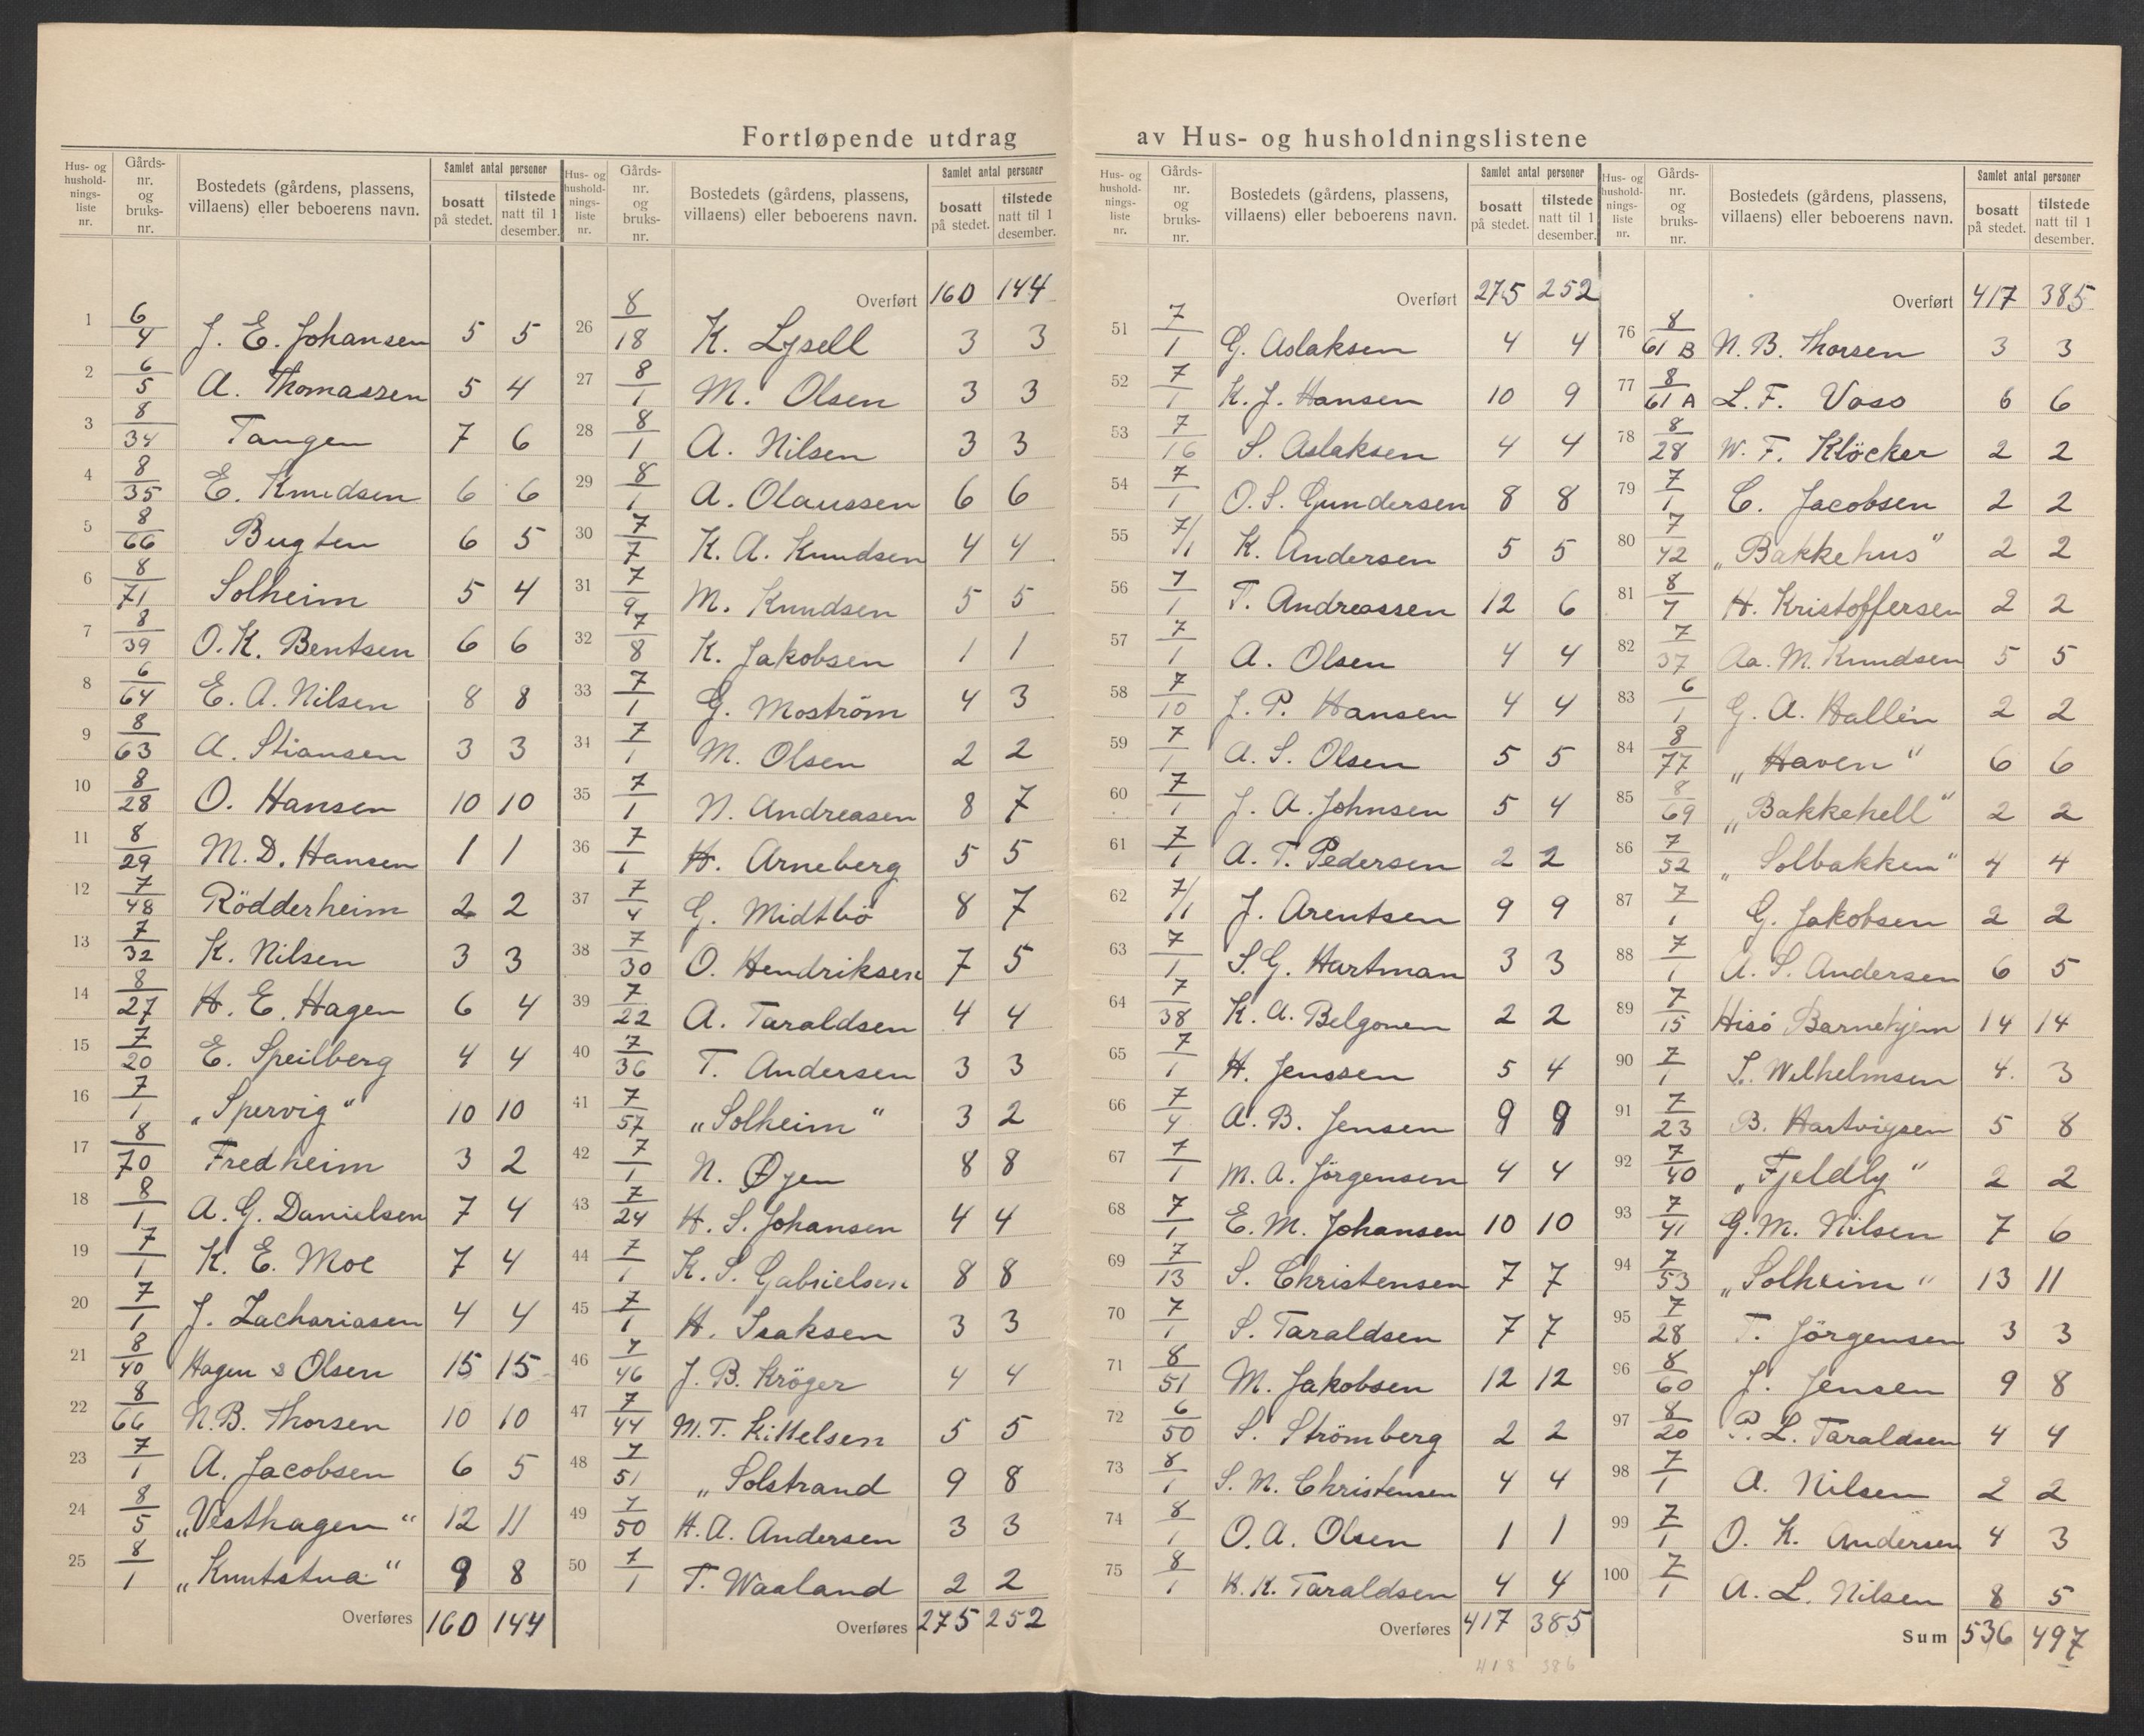 Fortløpende utdrag av Hus- og husholdningslistene
Hus- og husholdningsliste nr. Gårdsnr. og bruksnr. Bostedets (gårdens, plassens, villaens) eller beboerens navn. Samlet antal personer bosatt på stedet. tilstede natt til 1 desember.
1 6/4 J. E. Johansen 5 5
2 6/5 A. Thomassen 5 4
3 8/34 Tangen 7 6
4 8/35 E. Knudsen 6 6
5 8/66 Bugten 6 5
6 8/71 Solheim 5 4
7 8/39 O. K. Bentsen 6 6
8 6/64 E. A. Nilsen 8 8
9 8/63 A. Stiansen 3 3
10 8/28 O. Hansen 10 10
11 8/29 M. D. Hansen 1 1
12 7/48 Rödderheim 2 2
13 7/32 K. Nilsen 3 3
14 8/27 H. E. Hagen 6 4
15 7/20 E. Speilberg 4 4
16 7/1 „Spervig“ 10 10
17 8/70 Fredheim 3 2
18 8/1 A. G. Danielsen 7 4
19 7/1 K. E. Moe 7 4
20 7/1 J. Zachariasen 4 4
21 8/40 Hagen & Olsen 15 15
22 8/66 N. B. Thorsen 10 10
23 7/1 A. Jacobsen 6 5
24 8/5 „Vesthagen“ 12 11
25 8/1 „Knutstua“ 9 8
Overføres 160 144
Hus- og husholdningsliste nr. Gårdsnr. og bruksnr. Bostedets (gårdens, plassens, villaens) eller beboerens navn. Samlet antal personer bosatt på stedet. tilstede natt til 1 desember.
Overført 160 144
26 8/18 K. Lysell 3 3
27 8/1 M. Olsen 3 3
28 8/1 A. Nilsen 3 3
29 8/1 A. Olaussen 6 6
30 7/7 K. A. Knudsen 4 4
31 7/9 M. Knudsen 5 5
32 7/8 K. Jakobsen 1 1
33 7/1 G. Moström 4 3
34 7/1 M. Olsen 2 2
35 7/1 N. Andreasen 8 7
36 7/1 H. Arneberg 5 5
37 7/4 G. Midtbö 8 7
38 7/30 O. Hendriksen 7 5
39 7/22 A. Taraldsen 4 4
40 7/36 T. Andersen 3 3
41 7/57 „Solheim“ 3 2
42 7/1 N. Øyen 8 8
43 7/24 H. S. Johansen 4 4
44 7/1 K. S. Gabrielsen 8 8
45 7/1 H. Isaksen 3 3
46 7/46 J. B. Kröger 4 4
47 7/44 M. T. Kittelsen 5 5
48 7/51 „Solstrand 9 8
49 7/50 H. A. Andersen 3 3
50 7/1 T. Waaland 2 2
Overføres 275 252
Hus- og husholdningsliste nr. Gårdsnr. og bruksnr. Bostedets (gårdens, plassens, villaens) eller beboerens navn. Samlet antal personer bosatt på stedet. tilstede natt til 1 desember.
Overført 275 252
51 7/1 G. Aslaksen 4 4
52 7/1 K. J. Hansen 10 9
53 7/16 S. Aslaksen 4 4
54 7/1 O. S. Gundersen 8 8
55 7/1 K. Andersen 5 5
56 7/1 T. Andreassen 12 6
57 7/1 A. Olsen 4 4
58 7/10 J. P. Hansen 4 4
59 7/1 A. S. Olsen 5 5
60 7/1 J. A. Johnsen 5 4
61 7/1 A. T. Pedersen 2 2
62 7/1 J. Arentsen 9 9
63 7/1 S. G. Hartman 3 3
64 7/38 K. A. Belgonen 2 2
65 7/1 H. Jenssen 5 4
66 7/4 A. B. Jensen 9 9
67 7/1 M. A. Jörgensen 4 4
68 7/1 E. M. Johansen 10 10
69 7/13 S. Christensen 7 7
70 7/1 S. Taraldsen 7 7
71 8/51 M. Jakobsen 12 12
72 6/50 S. Strömberg 2 2
73 8/1 S. M. Christensen 4 4
74 8/1 O. A. Olsen 1 1
75 8/1 K. K. Taraldsen 4 4
Overføres 417 385
418 386
Hus- og husholdningsliste nr. Gårdsnr. og bruksnr. Bostedets (gårdens, plassens, villaens) eller beboerens navn. Samlet antal personer bosatt på stedet. tilstede natt til 1 desember.
Overført 417 385
76 8/61 B N. B. Thorsen 3 3
77 8/61 A L. F. Voso 6 6
78 8/28 W. F. Klöcker 2 2
79 7/1 C. Jacobsen 2 2
80 7/42 „Bakkehus“ 2 2
81 8/7 H. Kristoffersen 2 2
82 7/37 Aa. M. Knudsen 5 5
83 6/1 G. A. Hallén 2 2
84 8/77 „Haven“ 6 6
85 8/69 „Bakkehell“ 2 2
86 7/52 „Solbakken“ 4 4
87 7/1 G. Jakobsen 2 2
88 7/1 A. S. Andersen 6 5
89 7/15 Hisö Barnehjem 14 14
90 7/1 S. Wilhelmsen 4. 3
91 7/23 B. Hartvigsen 5 8
92 7/40 „Fjeldly“ 2 2
93 7/41 G. M. Nilsen 7 6
94 7/53 „Solheim“ 13 11
95 7/28 T. Jörgensen 3 3
96 8/60 J. Jensen 9 8
97 8/20 P. L. Taraldsen 4 4
98 7/1 A. Nilsen 2 2
99 7/1 O. K. Andersen 4 3
100 7/1 A. L. Nilsen 8 5
Sum 536 497